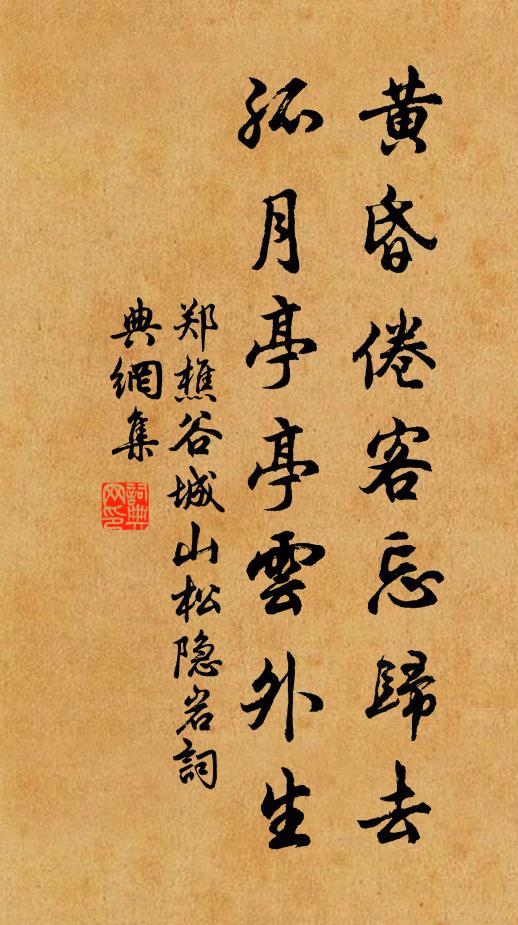 黄昏倦客忘歸去
孤月亭亭雲外生
郑樵谷城山松隐岩詞
典網集
詞典
网印